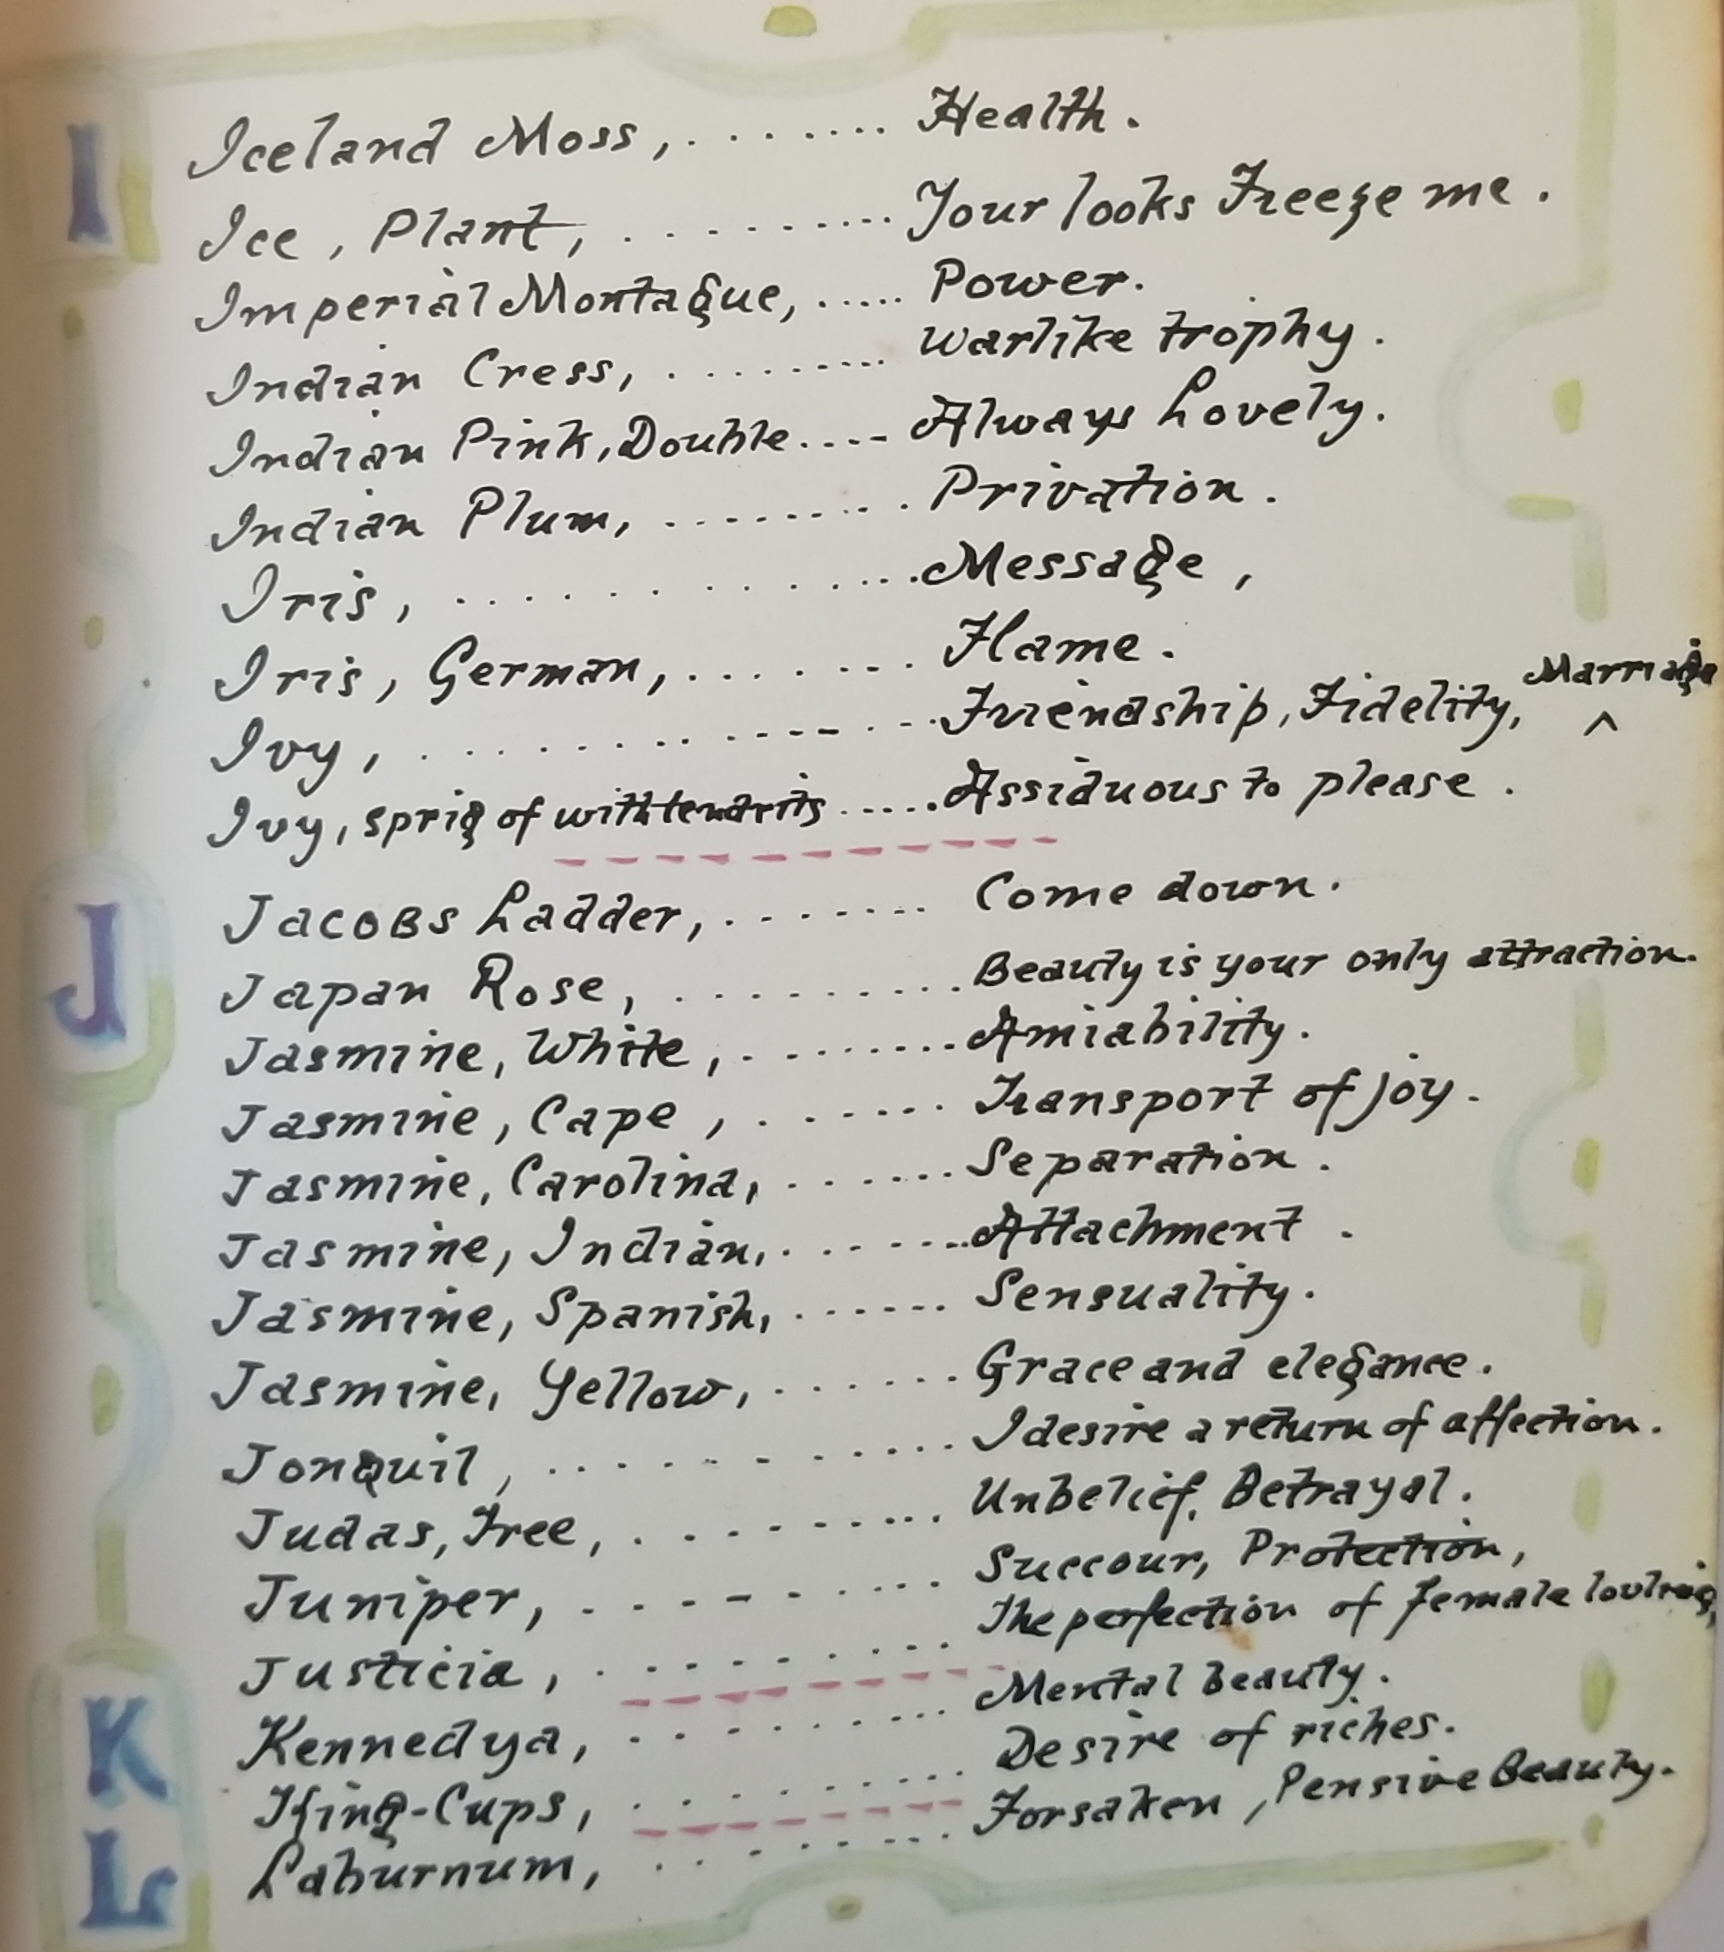 I
Iceland Moss, ........ Health.
Ice, Plant, ......... Your looks Freeze me.
Imperial Montague, ..... Power.
Indian Cress, ......... Warlike trophy.
Indian Pink, Double.... Always Lovely.
Indian Plum, ......... Privation.
Iris, ............ Message,
Iris, German, ....... Flame.
Marriage
Ivy, ............ Friendship, Fidelity, ^
Ivy, sprig of with tendrils ..... Assiduous to please.
J
Jacobs Ladder, ........ Come down.
Japan Rose, .......... Beauty is your only attraction.
Jasmine, White, ......... Amiability.
Jasmine, Cape, ....... Transport of joy.
Jasmine, Carolina, ....... Separation.
Jasmine, Indian, ....... Attachment.
Jasmine, Spanish, ...... Sensuality.
Jasmine, Yellow, ....... Grace and elegance.
Jonquil, ........... I desire a return of affection.
Judas, Tree, .......... Unbelief, Betrayal.
Juniper, .......... Succour, Protection,
Justicia, .......... The perfection of female
K
Kennedya, ......... Mental beauty.
King-Cups, ......... Desire of riches.
L
Laburnum, ........ Forsaken, Pensive Beauty.